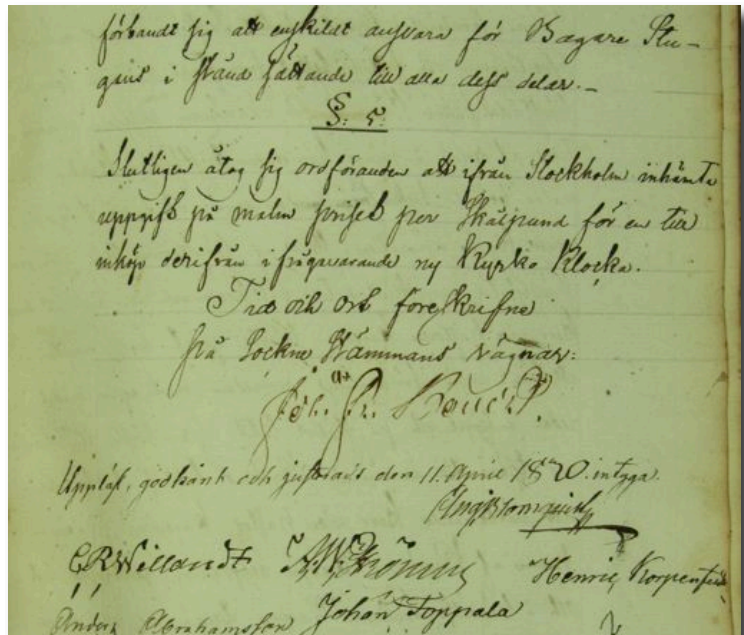 förbandt sig att enskildt ansvara för Bagare Stu-
gans i stånd sättande till alla dess delar.-
§. 5.
Slutligen åtog sig ordföranden att ifrån Stockholm inhämta
uppgift på malm priset per Skålpund för en till
inköp derifrån ifrågavarande ny Kyrko Klocka.
Tid och ort föreskrifne
på Sockne Stämmans vägnar:
Joh. Fr.
Uppläst, godkänt och justeradt den 11 April 1870. intyga.
Aug Blomqvist
C R Willandt Henric
Anders Abrahamsson Johan Toppala